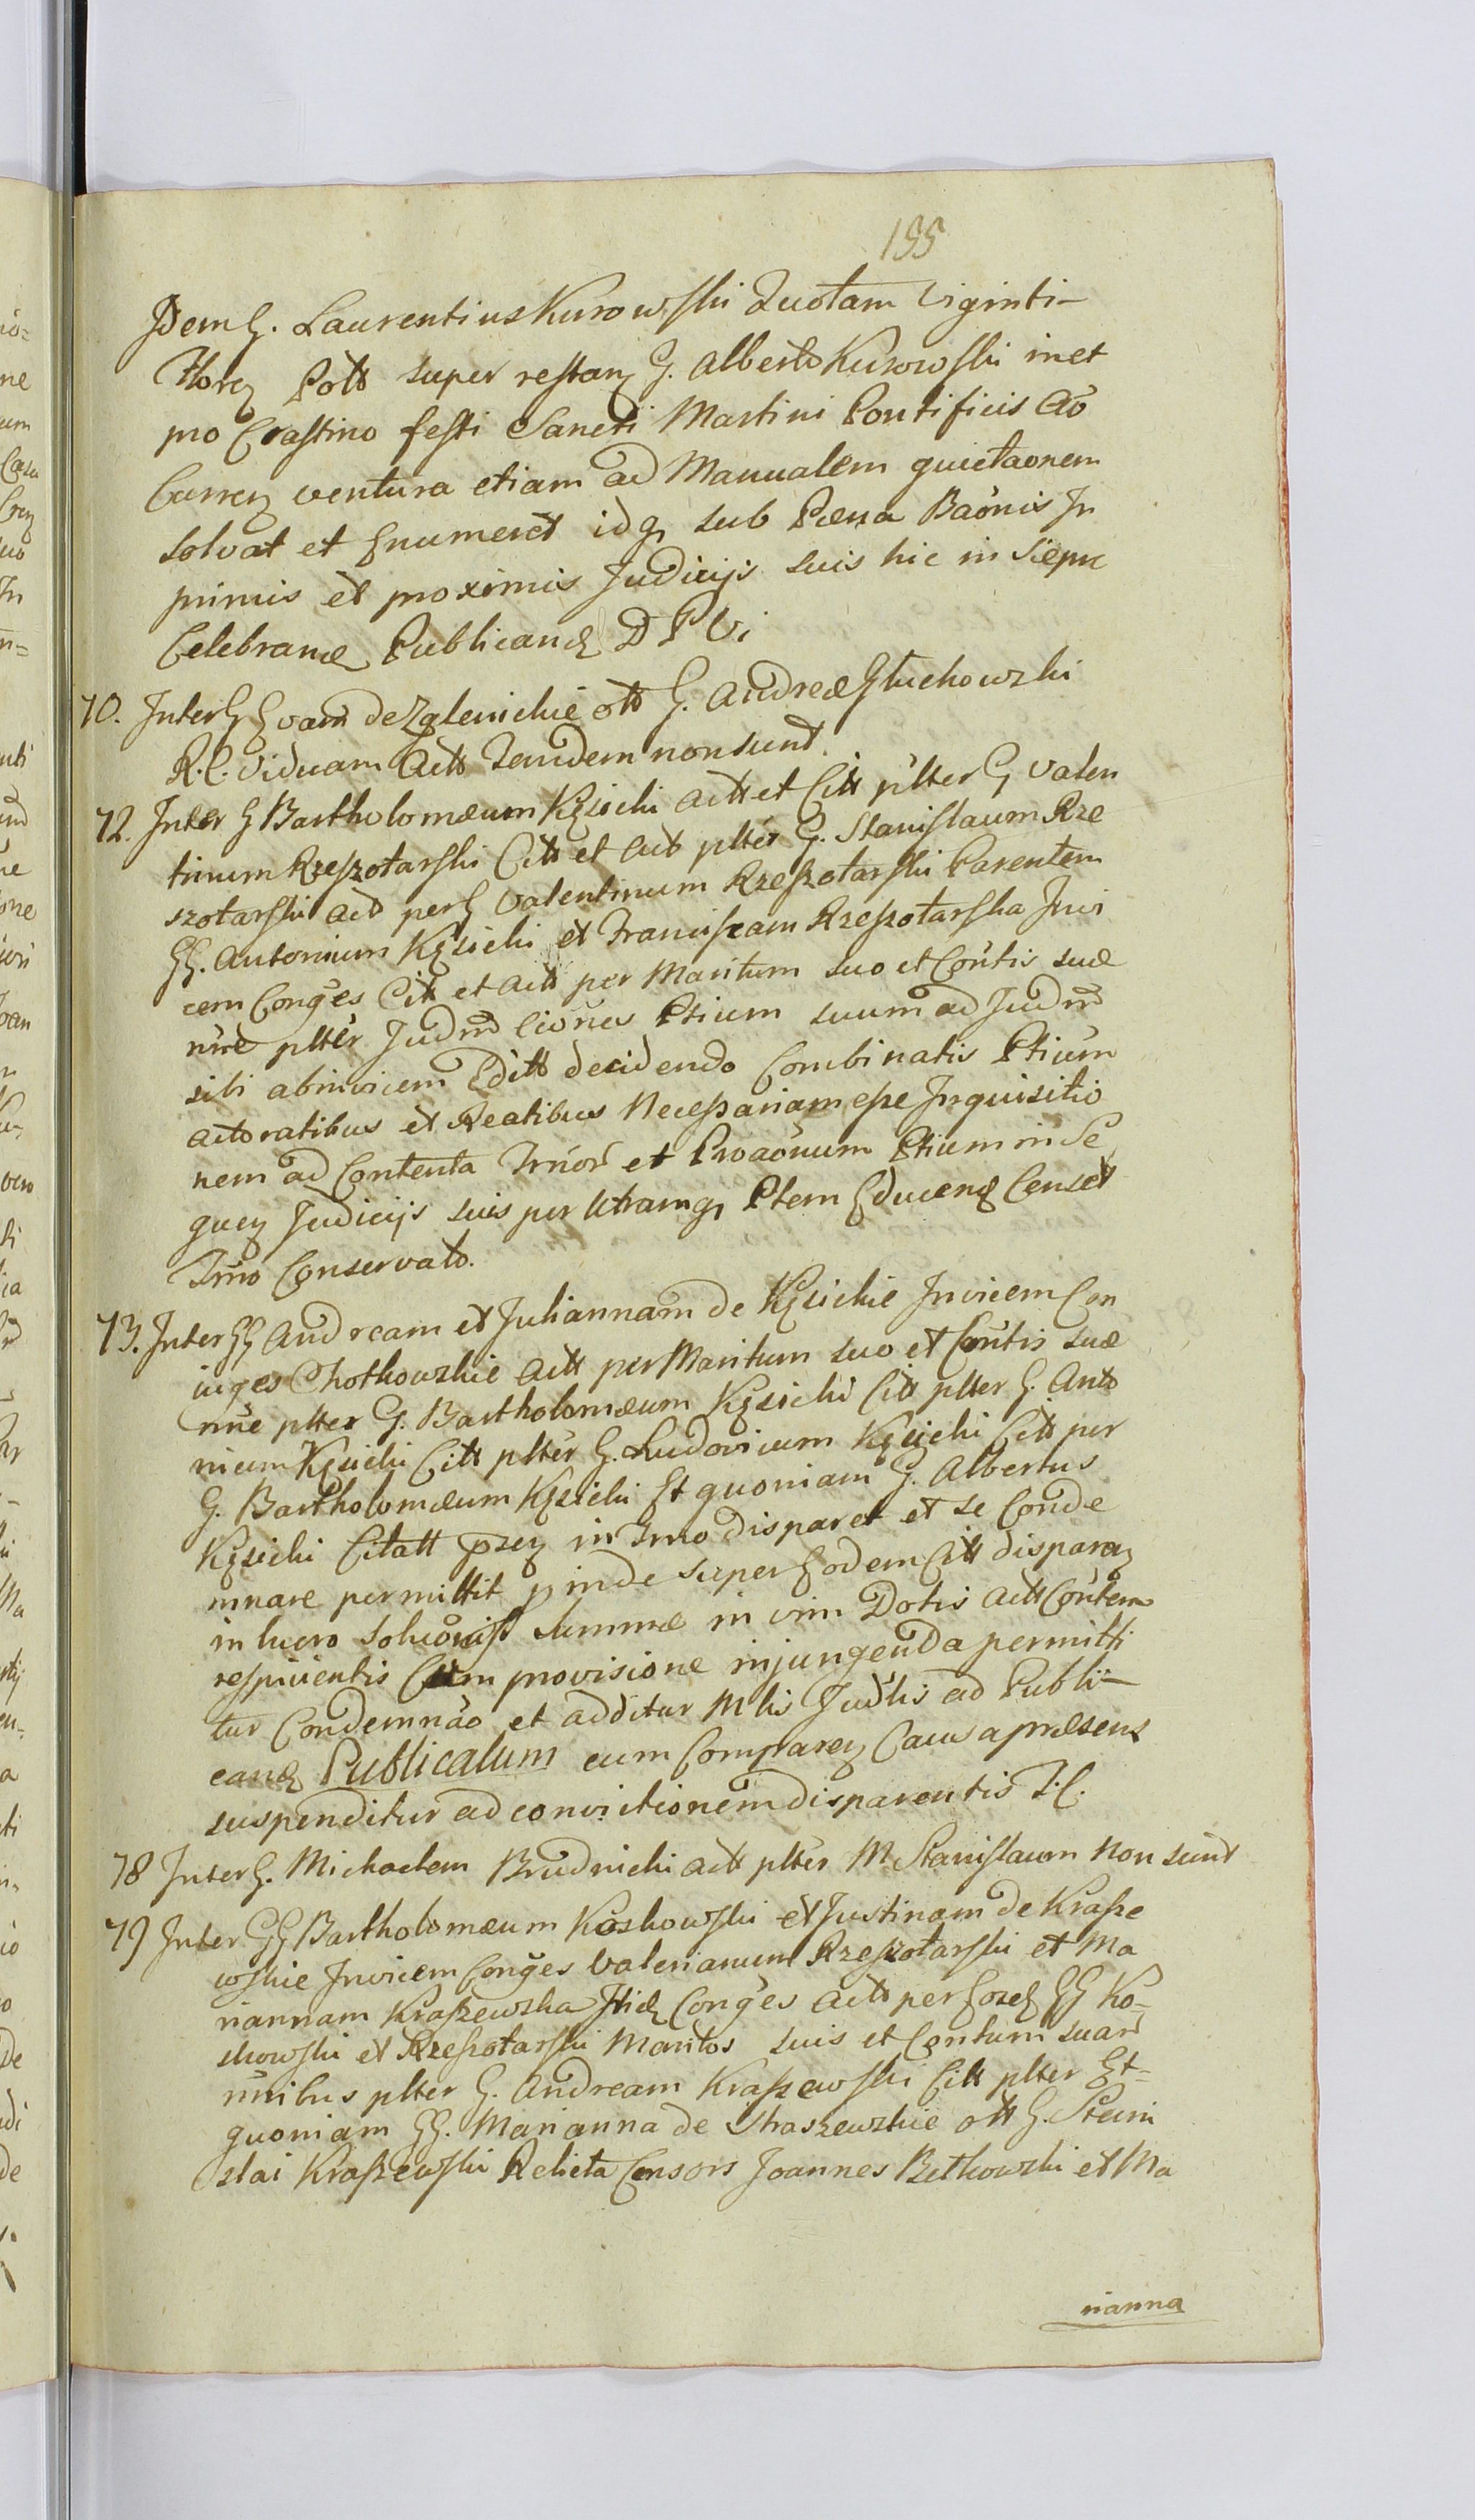 155
Idem G. Laurentius Kurowski Quotam Viginti-
Floren Poll super restan G. Alberto Kurowski inet
pro Crastino festi Sancti Martini Pontificis Ao
Curren ventura etiam ad Manualem quietaonem
solvat et Enumeret idq sub Pæna Baonis In
primis et proximis Judicijs suis hic in Siepu
Celebrand Publicand D P Vi
70. Inter G Evam de Zglenickie ott G. Andreæ Głuchowski
R. C. Viduam Actt Tandem non sunt.
72. Inter G Bartholomæum Kęsicki Actt et Citt pltter G Valen
tinum Rzeszotarski Citt et Act plter G. Stanislaum Rze
szotarski Act per G Valentinum Rzeszotarski Parentem
GG. Antonium Kęsicki et Franciscam Rzeszotarska Invi
cem Conges Citt et Actt per Maritum suo et Contis suæ
nne plter Judm Ciones Ptium suum ad Judm
sibi abinvicem Editt decidendo Combinatis Ptium
Actoratibus et Reatibus Necessariam esse Inquisitio
nem ad Contenta Tmor et Proaonum Ptium in Se
quen Judicijs suis per Utramq Ptem Educend Censet
Tmo Conservato.
73. Inter GG Andream et Juliannam de Kęsickie Invicem Con
iuges Chotkowskie Actt per Maritum suo et Contis suæ
nne plter G. Bartholomæum Kęsicki Citt plter G. Anto
nium Kęsicki Citt plter G. Ludovicum Kęsicki Citt per
G. Bartholomæum Kęsicki Et quoniam G. Albertus
Kęsicki Citatt præn in Tmo disparet et se Conde
mnare permittit proinde super Eodem Citt disparen
in lucro Soluonis Summæ in vim Dotis Actt Contem
respicientis Cum provisione injungenda permitti
tur Condemnao et additur Mlis Judlis ad Publi-
cand Publicatum cum Comparen Causa præsens
suspenditur ad convictionem disparentis T. C.
78 Inter G. Michaelem Brudnicki Actt plter M Stanislaum Non sunt
79 Inter GG Bartholomæum Koskowski et Justinam de Krasze
wskie Invicem Conges Valerianum Rzeszotarski et Ma
riannam Kraszewska Itid Conges Actt per Eosd GG Ko-
skowski et Rzeszotarski Maritos suis et Contum suar
nnibus plter G. Andream Kraszewski Citt plter Et-
quoniam GG. Marianna de Straszewskie ott G. Stani
slai Kraszewski Relicta Consors Joannes Betkowski et Ma
rianna